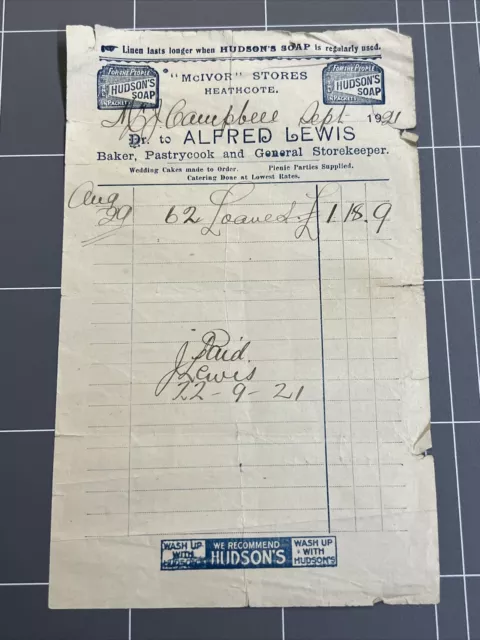 Linen lasts longer when HUDSON'S SOAP is regularly used.
FOR THE PEOPLE
HUDSON'S
SOAP
IN PACKETS
"McIVOR" STORES
HEATHCOTE.
FOR THE PEOPLE
HUDSON'S
SOAP
IN PACKETS
Campbell Sept 1921
Dr. to ALFRED LEWIS
Baker, Pastrycook and General Storekeeper.
Wedding Cakes made to Order. Picnic Parties Supplied.
Catering Done at Lowest Rates.
Aug
29 62 Loaves £ 1 18 . 9
Paid
J Lewis
22-9-21
WASH UP
WITH
HUDSON'S
WE RECOMMEND
HUDSON'S
WASH UP
WITH
HUDSON'S